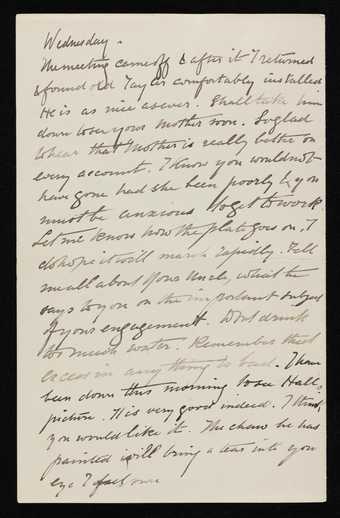 Wednesday.
The meeting came off & after it I returned
& found old Tayler comfortably installed
He is as nice as ever. Shall take him
down to see your Mother soon. So glad
to hear that Mother is really better on
every account. I know you would not
have gone had she been poorly & you
must be anxious to get to work
Let me know how the plate goes on. I
do hope it will march rapidly. Tell
me all about your Uncle, what he
says to you on the important subject
of your engagement. Dont drink
too much water. Remember that
excess in any thing is bad. I have
been down this morning to see Hall's
picture. It is very good indeed. I think
you would like it. The chaos he has
painted will bring a tear into your
eye I feel sure